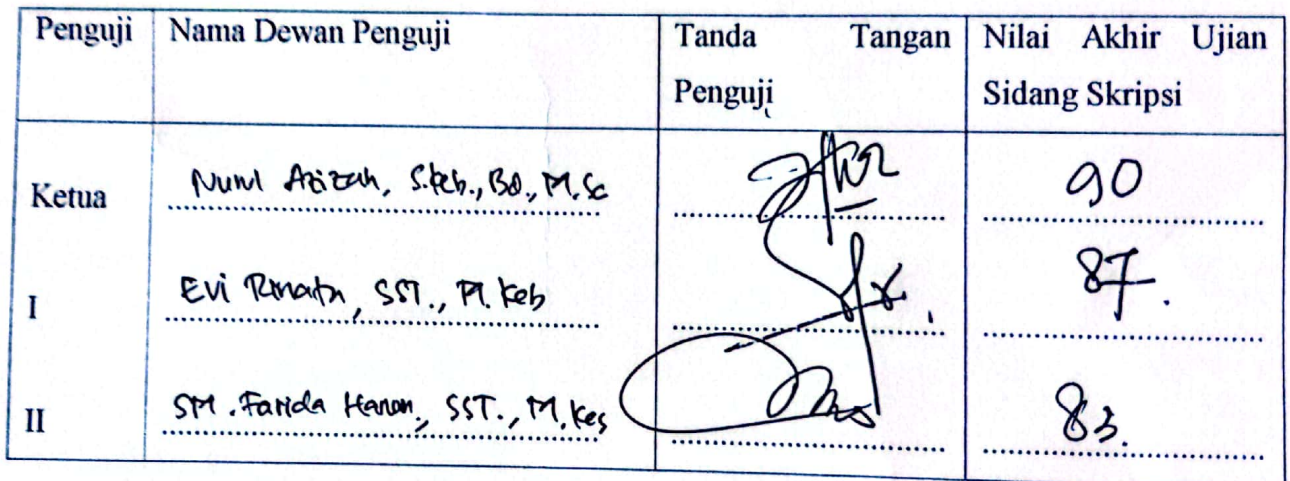 Penguji Nama Dewan Penguji Tanda Tangan Nilai Akhir Ujian
Penguji Sidang Skripsi
Ketua Nurul Azizah, S.Keb., Bd., M.Sc 90
I Evi Rinata, SST., M.Keb 87.
II SM. Farida Hanon, SST., M.Kes 83.